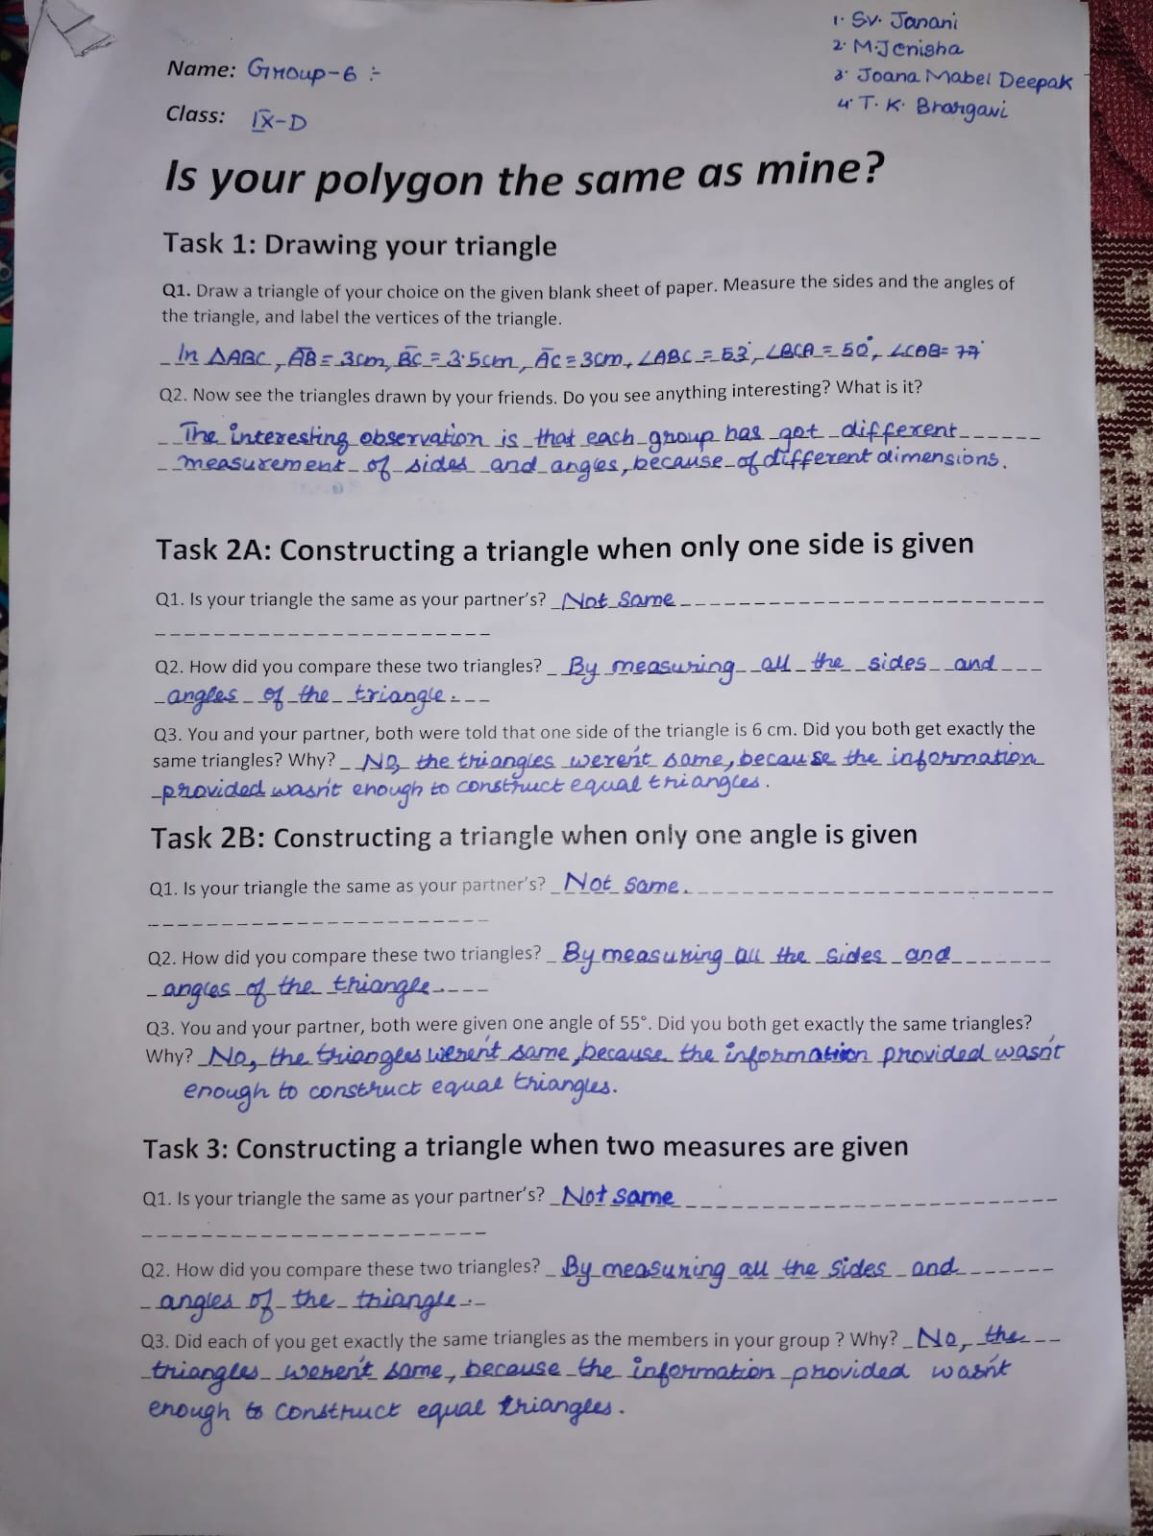 1. Sv. Janani
2. M.Jenisha
3. Joana Mabel Deepak
4. T. K. Bhargavi
Name: Group-6 :-
Class: IX-D
Is your polygon the same as mine?
Task 1: Drawing your triangle
Q1. Draw a triangle of your choice on the given blank sheet of paper. Measure the sides and the angles of
the triangle, and label the vertices of the triangle.
In △ABC, A̅B̅ = 3cm, B̅C̅ = 3.5cm, A̅C̅ = 3cm, ∠ABC = 53°, ∠BCA = 50°, ∠CAB= 77°
Q2. Now see the triangles drawn by your friends. Do you see anything interesting? What is it?
The interesting observation is that each group has got different
measurement of sides and angles, because of different dimensions.
Task 2A: Constructing a triangle when only one side is given
Q1. Is your triangle the same as your partner's? Not same
Q2. How did you compare these two triangles? By measuring all the sides and
angles of the triangle.
Q3. You and your partner, both were told that one side of the triangle is 6 cm. Did you both get exactly the
same triangles? Why? No, the triangles weren't same, because the information
provided wasn't enough to construct equal triangles.
Task 2B: Constructing a triangle when only one angle is given
Q1. Is your triangle the same as your partner's? Not same.
Q2. How did you compare these two triangles? By measuring all the sides and
angles of the triangle.
Q3. You and your partner, both were given one angle of 55°. Did you both get exactly the same triangles?
Why? No, the triangles weren't same, because the information provided wasn't
enough to construct equal triangles.
Task 3: Constructing a triangle when two measures are given
Q1. Is your triangle the same as your partner's? Not same
Q2. How did you compare these two triangles? By measuring all the sides and
angles of the triangle.
Q3. Did each of you get exactly the same triangles as the members in your group ? Why? No, the
triangles weren't same, because the information provided wasn't
enough to construct equal triangles.